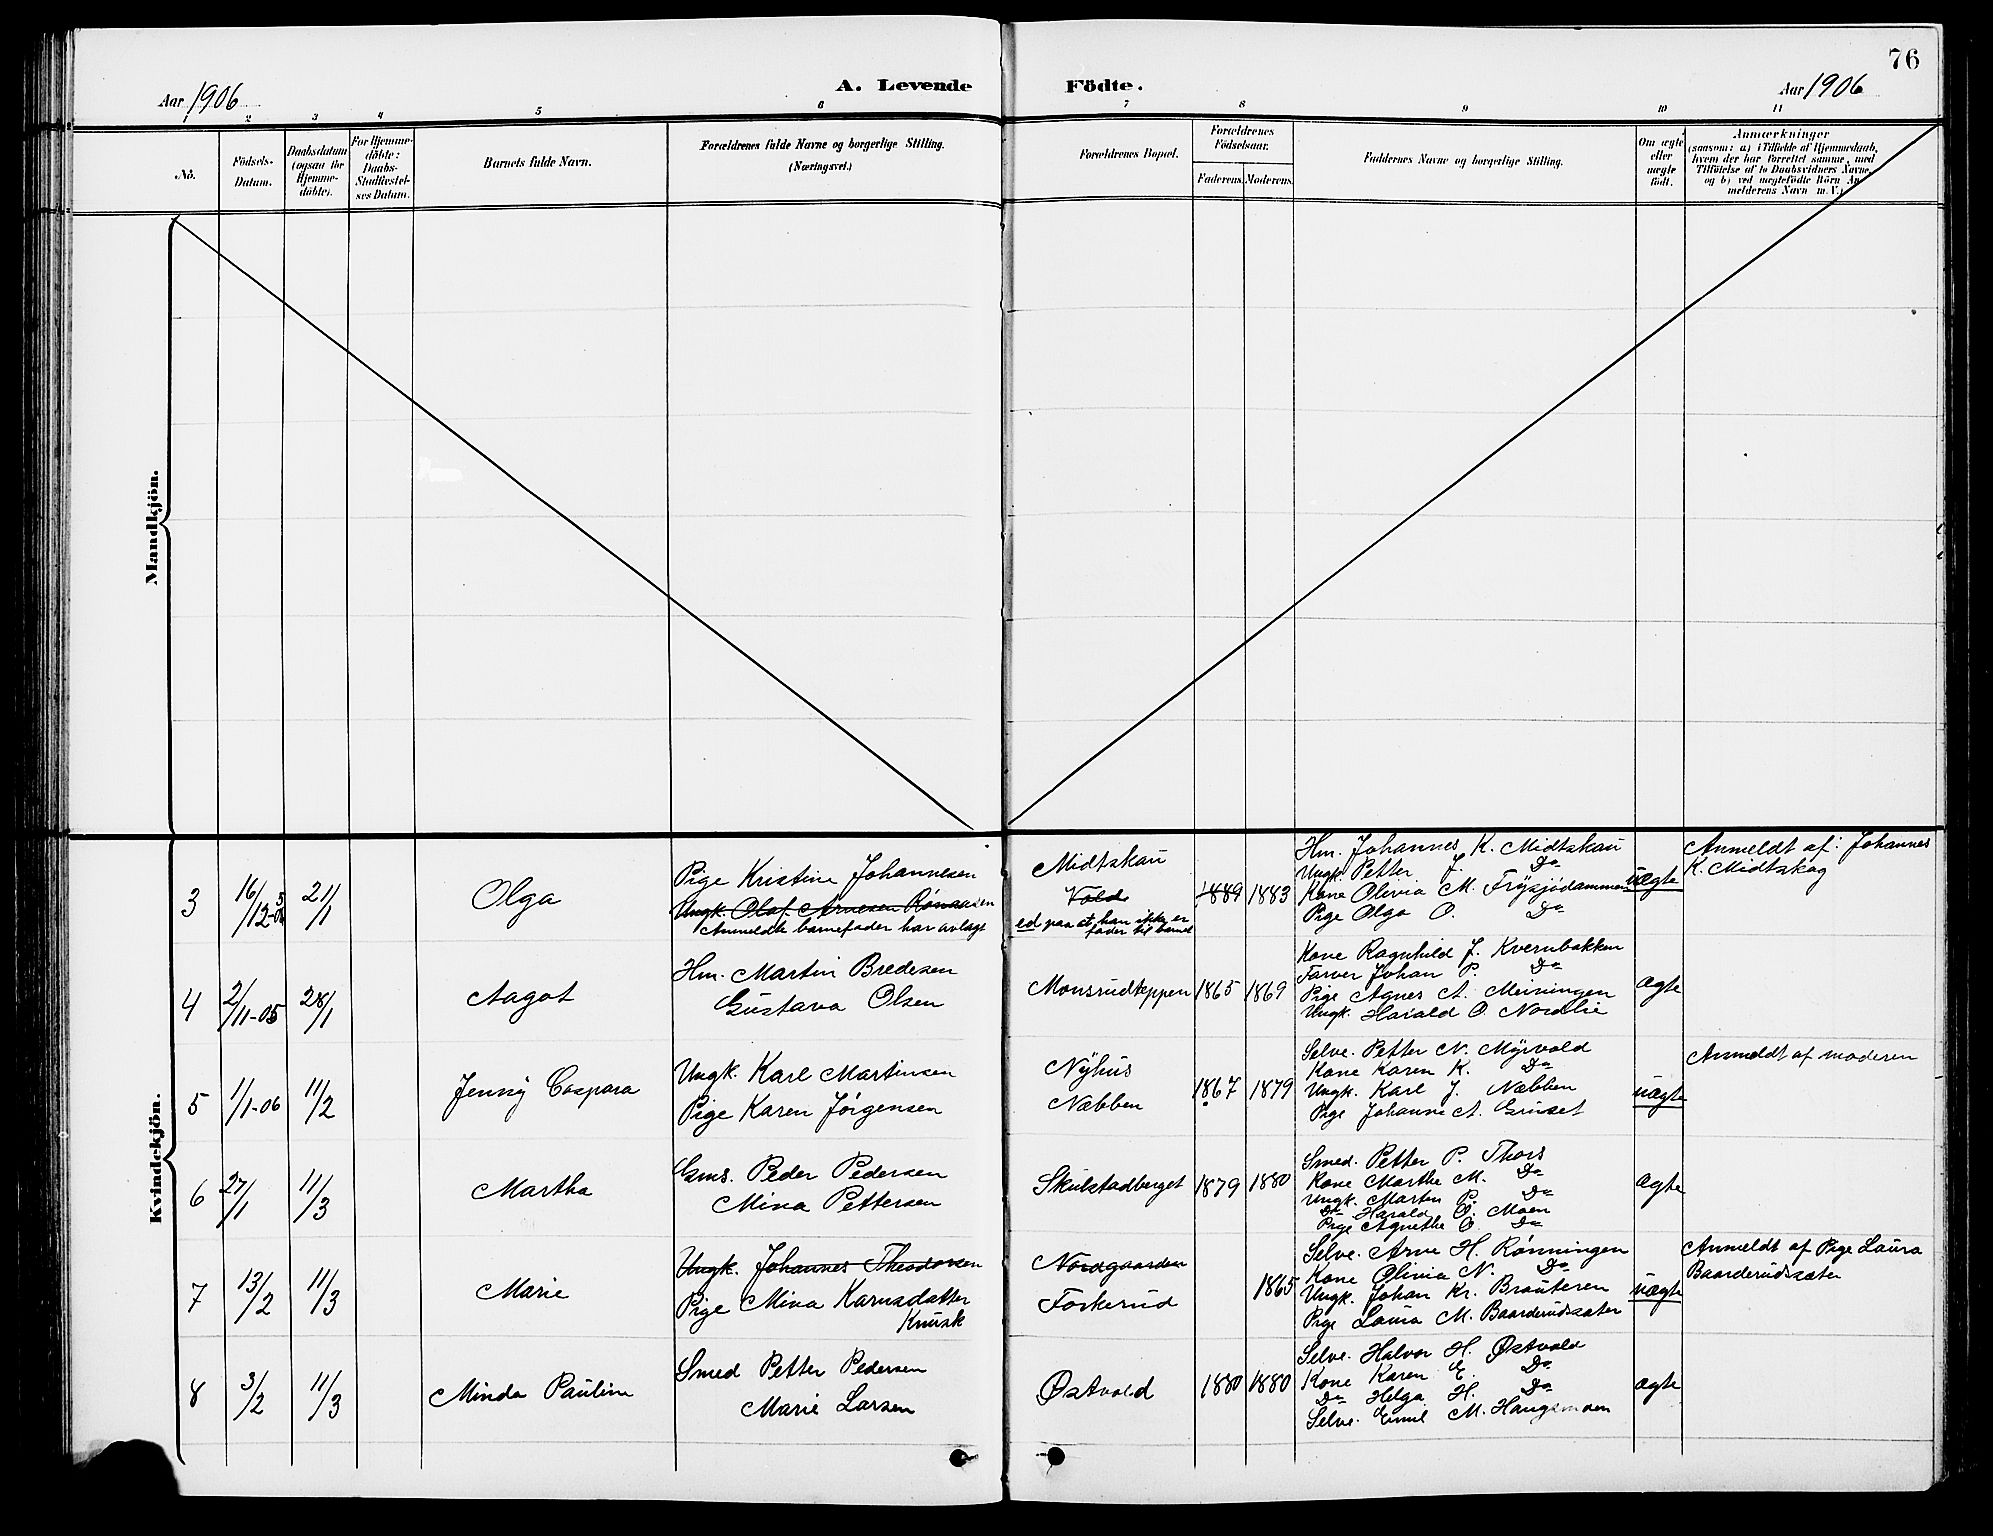 76
Aar 1906
A. Levende
Födte.
Aar 1906
2 3 4 5 6 7 8 9 10 11
No.
Födsels-Datum.
Daabsdatum (ogsaa for Hjemme-döbte).
For Hjemme-döbte: Daabs-Stadfæstel-ses Datum.
Barnets fulde Navn.
Forældrenes fulde Navne og borgerlige Stilling. (Næringsvei.)
Forældrenes Bopæl.
Forældrenes Födselsaar.
Faderens. Moderens.
Faddernes Navne og borgerlige Stilling.
Om ægte eller uægte födt.
Anmærkninger
(saasom: a) i Tilfælde af Hjemmedaab,
hvem der har forrettet samme, med
Tilföielse af to Daabsvidners Navne,
og b) ved uægtefödte Börn An-
melderens Navn m. V.)
Mandkjön.
Kvindekjön.
3
16/12-05
21/1
Olga
Pige Kristine Johannesen
Ungk. Olaf Arnesen Rønaasen
Anmeldte barnefader har avlagt
Midtskau
Vold
ed paa at han ikke er
fader til barnet
1889
1883
Hm. Johannes K. Midtskau
Ungk. Petter J. Do
Kone Olivia M. Frysjödammen
Pige Olga O. Do
uægte
Anmeldt af: Johannes
K. Midtskog
4
2/11-05
28/1
Aagot
Hm. Martin Bredesen
Gustava Olsen
Monsrudkeppen
1865
1869
Kone Ragnhild J. Kvernbakken
Farver Johan P. Do
Pige Agnes A. Meiningen
Ungk. Harald O. Nordlie
ægte
5
1/1-06
11/2
Jenny Caspara
Ungk. Karl Martinsen
Pige Karen Jørgensen
Nyhus
Næbben
1867
1879
Selve. Petter N. Myrvold
Kone Karen K. Do
Ungk. Karl J. Næbben
Pige Johanne A. Gruset
uægte
Anmeldt af moderen
6
27/1
11/3
Martha
Gms. Peder Pedersen
Mina Pettersen
Skulstadberget
1879
1880
Smed. Petter P. Thors
Kone Marthe M. Do
Ungk. Martin P. Do
Do Harald O. Moen
Pige Agnethe O. Do
ægte
7
13/2
11/3
Marie
Ungk. Johannes Theodorsen
Pige Mina Karnsdatter
Knusk
Nordgaarden
Forkerud
1865
Selve. Arne H. Rønningen
Kone Olivia N. Do
Ungk. Johan Kr. Brauteren
Pige Laura M. Baarderudsæter
uægte
Anmeldt af Pige Laura
Baarderudsæter
8
3/2
11/3
Minda Pauline
Smed Petter Pedersen
Marie Larsen
Østvold
1880
1880
Selve. Halvor H. Østvold
Kone Karen E. Do
Do Helga H. Do
Selve. Emil M. Haugsmoen
ægte